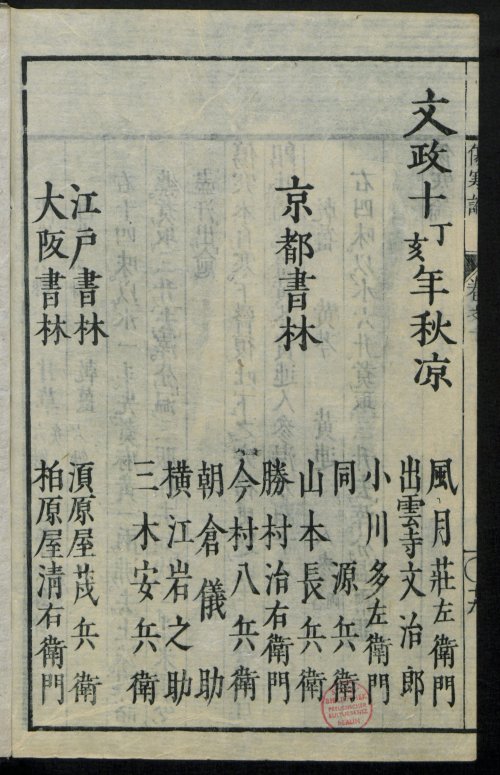 文政十丁亥年秋凉
京都書林
風月莊左衛門
出雲寺文治郎
小川多左衛門
同源兵衛
山本長兵衛
勝村治右衛門
今村八兵衛
朝倉儀助
横江岩之助
三木安兵衛
江戸書林
湏原屋茂兵衛
大阪書林
柏原屋清右衛門